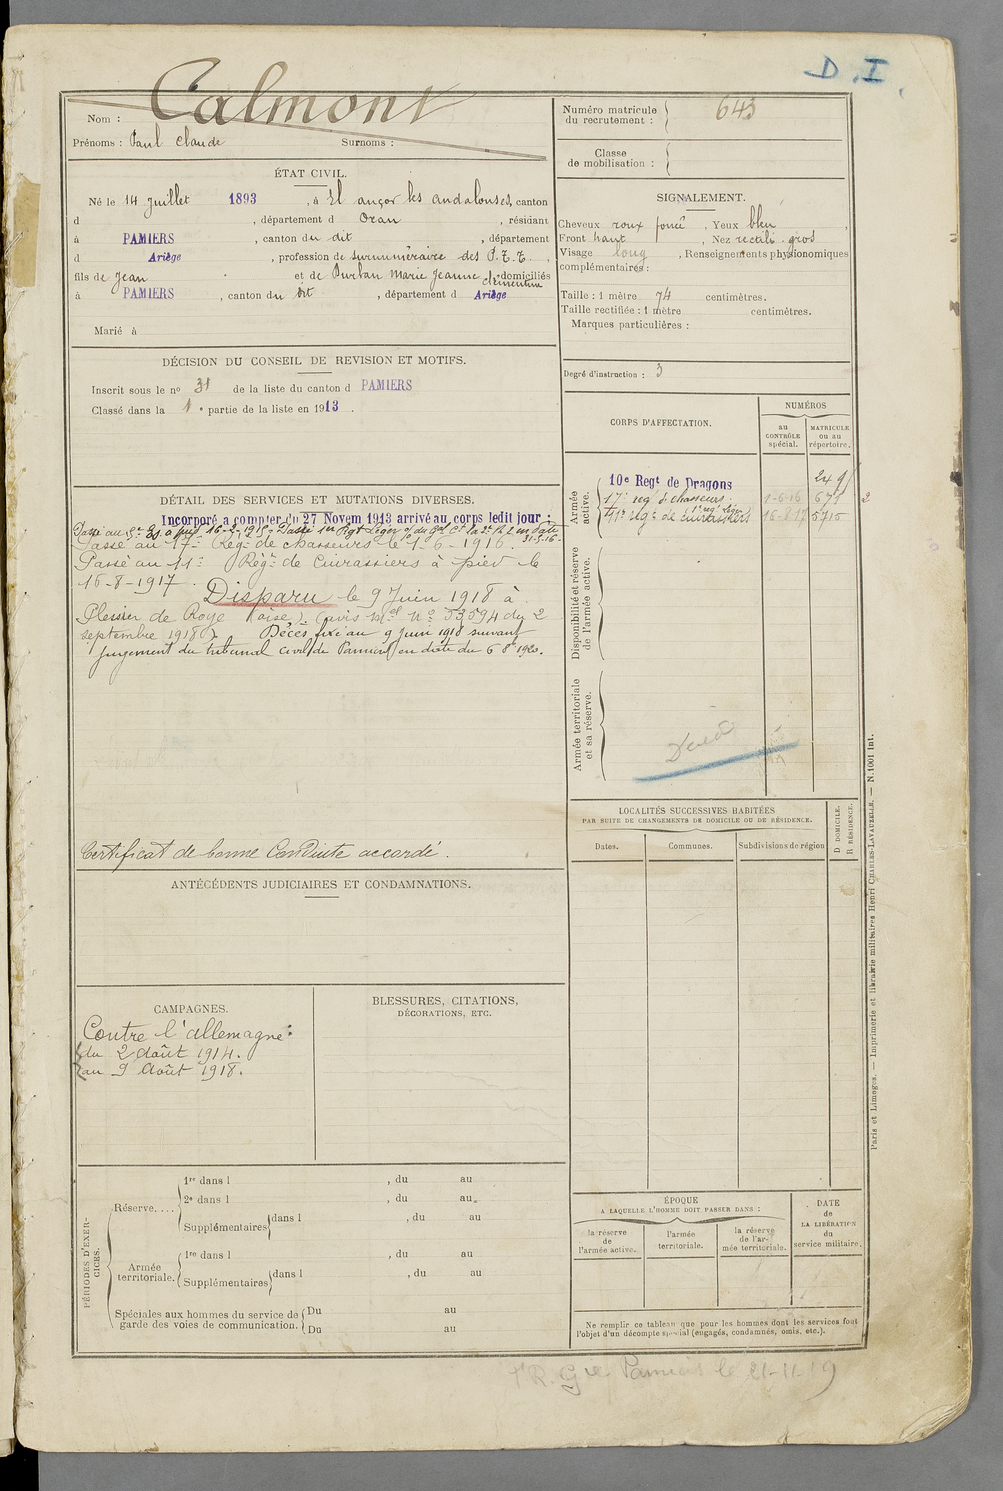 D.I.
Nom : Calmont
Prénoms : Paul Claude Surnoms :
ÉTAT CIVIL.
Né le 14 Juillet 1893, à El ançor les andalouses, canton
d , département d Oran , résidant
à PAMIERS , canton du dit , département
d Ariège , profession de surnuméraire des P.T.T. ,
fils de Jean et de Durban Marie Jeanne Clémentine, domiciliés
à PAMIERS , canton du dit , département d Ariège
Marié à
DÉCISION DU CONSEIL DE REVISION ET MOTIFS.
Inscrit sous le nº 31 de la liste du canton d PAMIERS
Classé dans la 1e partie de la liste en 1913.
DÉTAIL DES SERVICES ET MUTATIONS DIVERSES.
Incorporé a compter du 27 Novem 1913 arrivé au corps ledit jour :
Passé au 17e Régt de chasseurs le 1-6-1916.
31-5-16-
Passé au 11e Régt de Cuirassiers à pied le
16-8-1917. Disparu le 9 Juin 1918 à
Plessier de Roye (oise). (avis Mel Nº 53594 du 2
septembre 1918). Décès fixé au 9 Juin 1918 suivant
jugement du tribunal civil de Pamiers en date du 6 8re 1920.
Certificat de bonne Conduite accordé.
ANTÉCÉDENTS JUDICIAIRES ET CONDAMNATIONS.
CAMPAGNES.
Contre l'allemagne :
du 2 Août 1914.
au 9 Août 1918.
BLESSURES, CITATIONS,
DÉCORATIONS, ETC.
PÉRIODES D'EXERCICES.
Réserve....
1re dans l , du au
2e dans l , du au
Supplémentaires dans l , du au
Armée territoriale.
1re dans l , du au
Supplémentaires dans l , du au
Spéciales aux hommes du service de garde des voies de communication.
Du au
Du au
Numéro matricule du recrutement : 643
Classe de mobilisation :
SIGNALEMENT.
Cheveux roux foncé , Yeux bleu ,
Front haut , Nez rectili. gros
Visage long , Renseignements physionomiques
complémentaires :
Taille : 1 mètre 74 centimètres.
Taille rectifiée : 1 mètre centimètres.
Marques particulières :
Degré d'instruction : 3
CORPS D'AFFECTATION.
NUMÉROS
au CONTRÔLE spécial.
MATRICULE ou au répertoire.
Armée active.
10e Regt de Dragons 249
17e reg. de chasseurs. 1-6-16 671
11e régt de cuirassiers 16-8-17 5715
Disponibilité et réserve de l'armée active.
Armée territoriale et sa réserve.
LOCALITÉS SUCCESSIVES HABITÉES
PAR SUITE DE CHANGEMENTS DE DOMICILE OU DE RÉSIDENCE.
Dates.
Communes.
Subdivisions de région
D DOMICILE.
R RÉSIDENCE.
ÉPOQUE
A LAQUELLE L'HOMME DOIT PASSER DANS :
la réserve de l'armée active.
l'armée territoriale.
la réserve de l'armée territoriale.
DATE de LA LIBÉRATION du service militaire.
Ne remplir ce tableau que pour les hommes dont les services font
l'objet d'un décompte spécial (engagés, condamnés, omis, etc.).
Paris et Limoges. — Imprimerie et librairie militaires Henri CHARLES-LAVAUZELLE. — N. 1001 Int.
Pamiers le 21-11-19